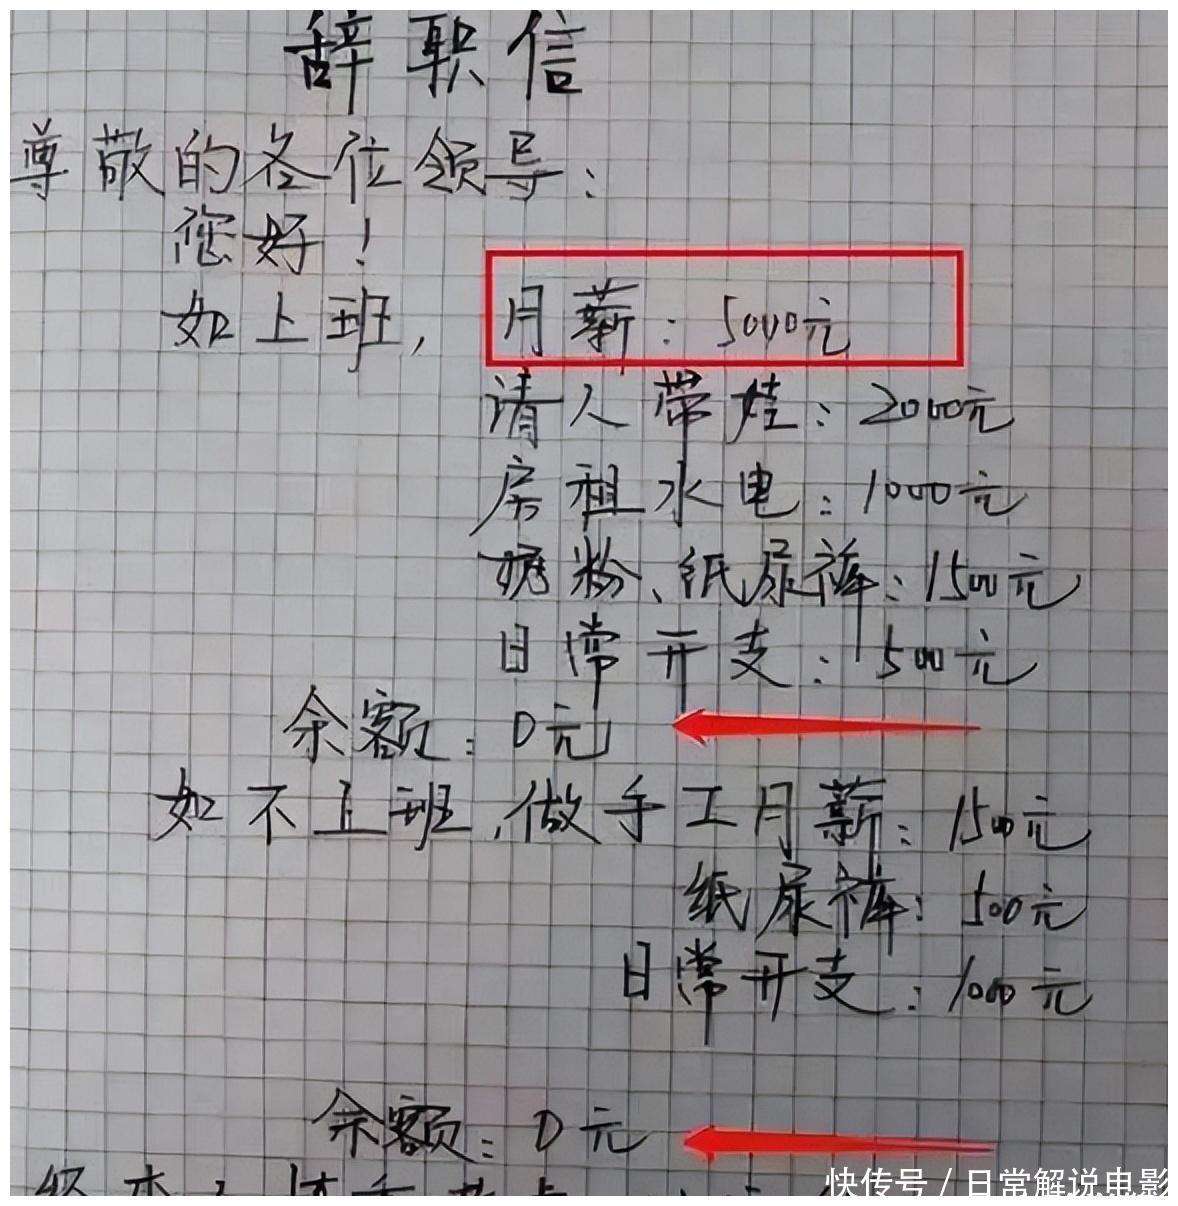 辞职信
尊敬的各位领导:
您好!
如上班, 月薪: 5000元
请人带娃: 2000元
房租水电: 1000元
奶粉、纸尿裤: 1500元
日常开支: 500元
余额: 0元
如不上班,做手工月薪: 1500元
纸尿裤: 500元
日常开支: 1000元
余额: 0元
快传号 / 日常解说电影